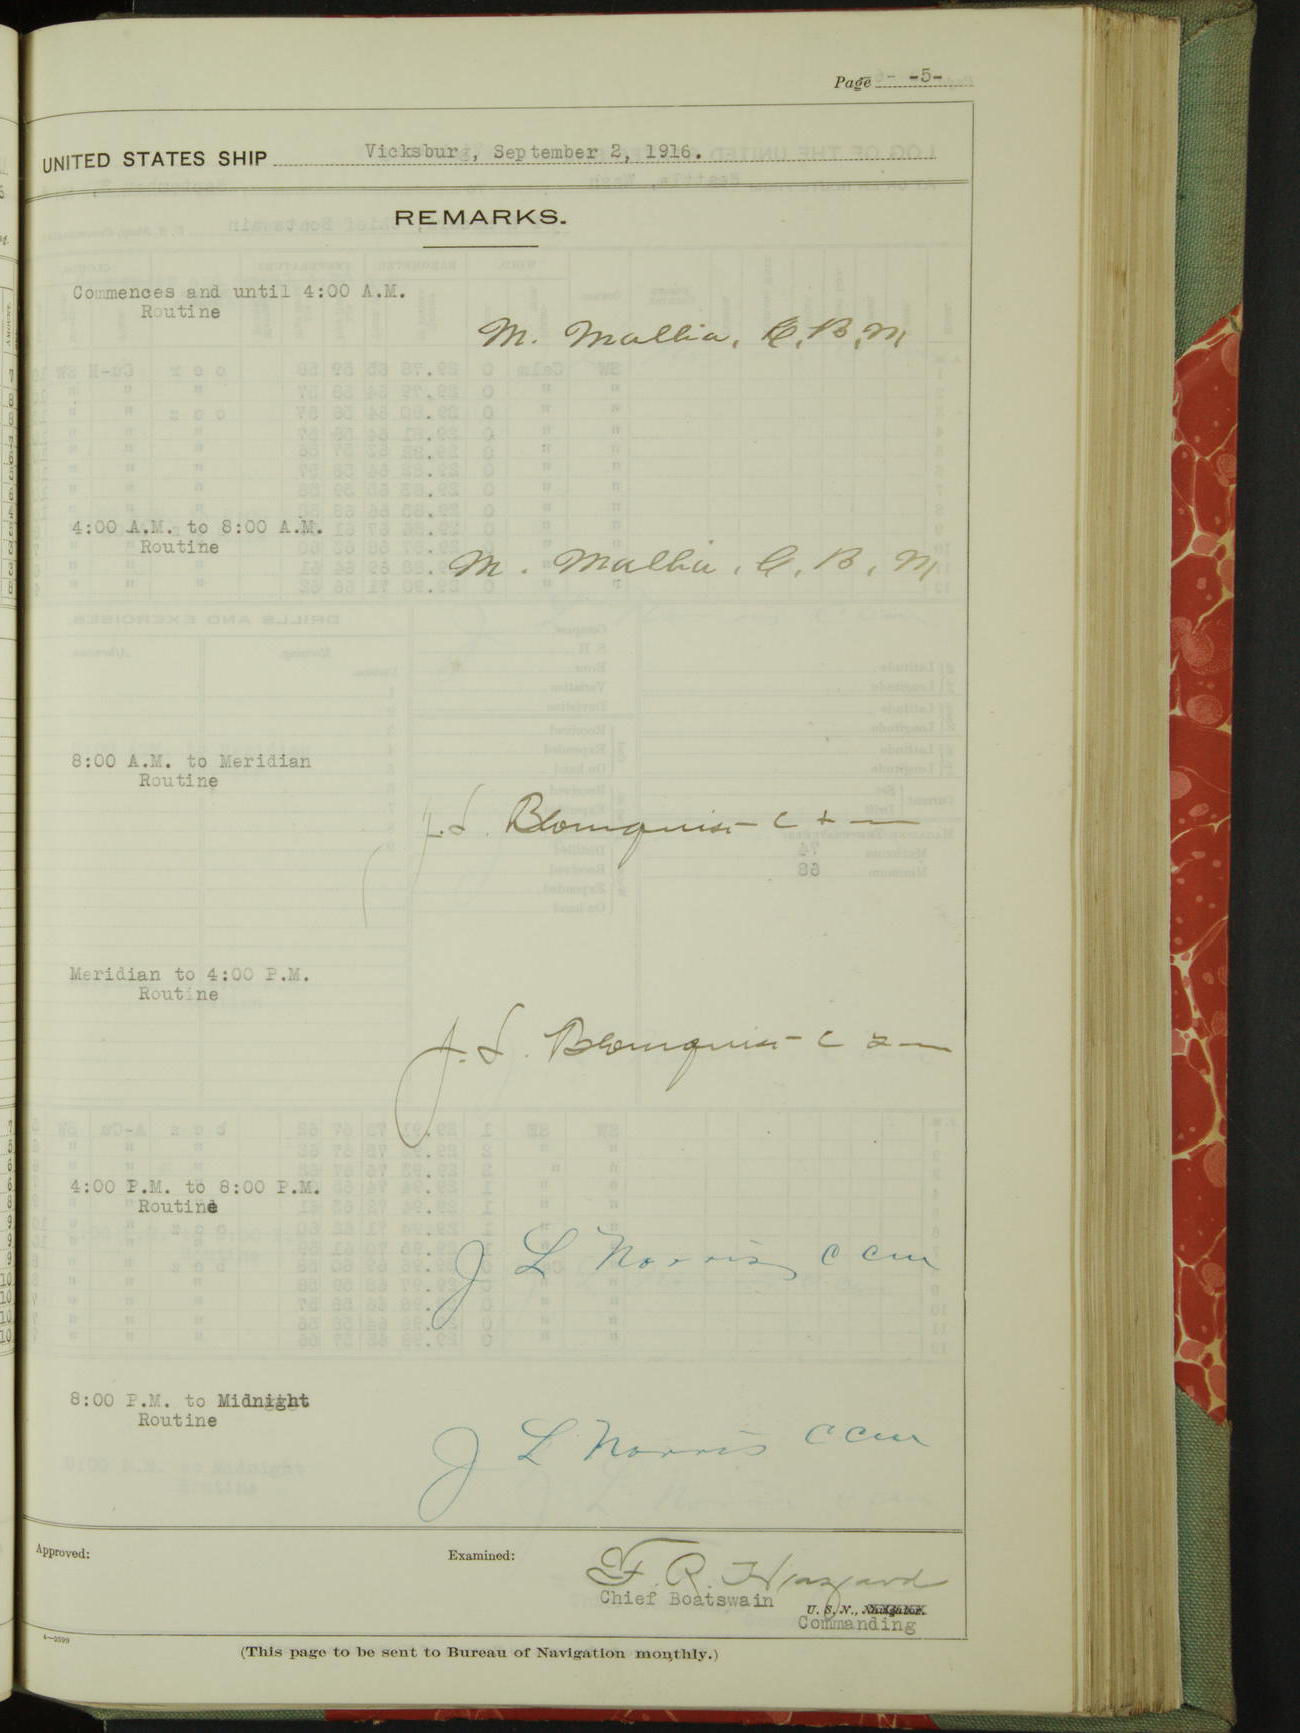 Page -5-
UNITED STATES SHIP Vicksbur, September 2, 1916.
REMARKS.
Commences and until 4:00 A.M.
Routine
M. Mallia, C.B.M,
4:00 A.M. to 8:00 A.M.
Routine
M. Mallia, C.B.M,
8:00 A.M. to Meridian
Routine
J. L. Blomquist
Meridian to 4:00 P.M.
Routine
J. L. Blomquist
4:00 P.M. to 8:00 P.M.
Routine
J L Norris CCM
8:00 P.M. to Midnight
Routine
J L Norris CCM
Approved:
Examined:
F. R. Hazard
Chief Boatswain U. S. N., Navigator.
Commanding
4—3599
(This page to be sent to Bureau of Navigation monthly.)